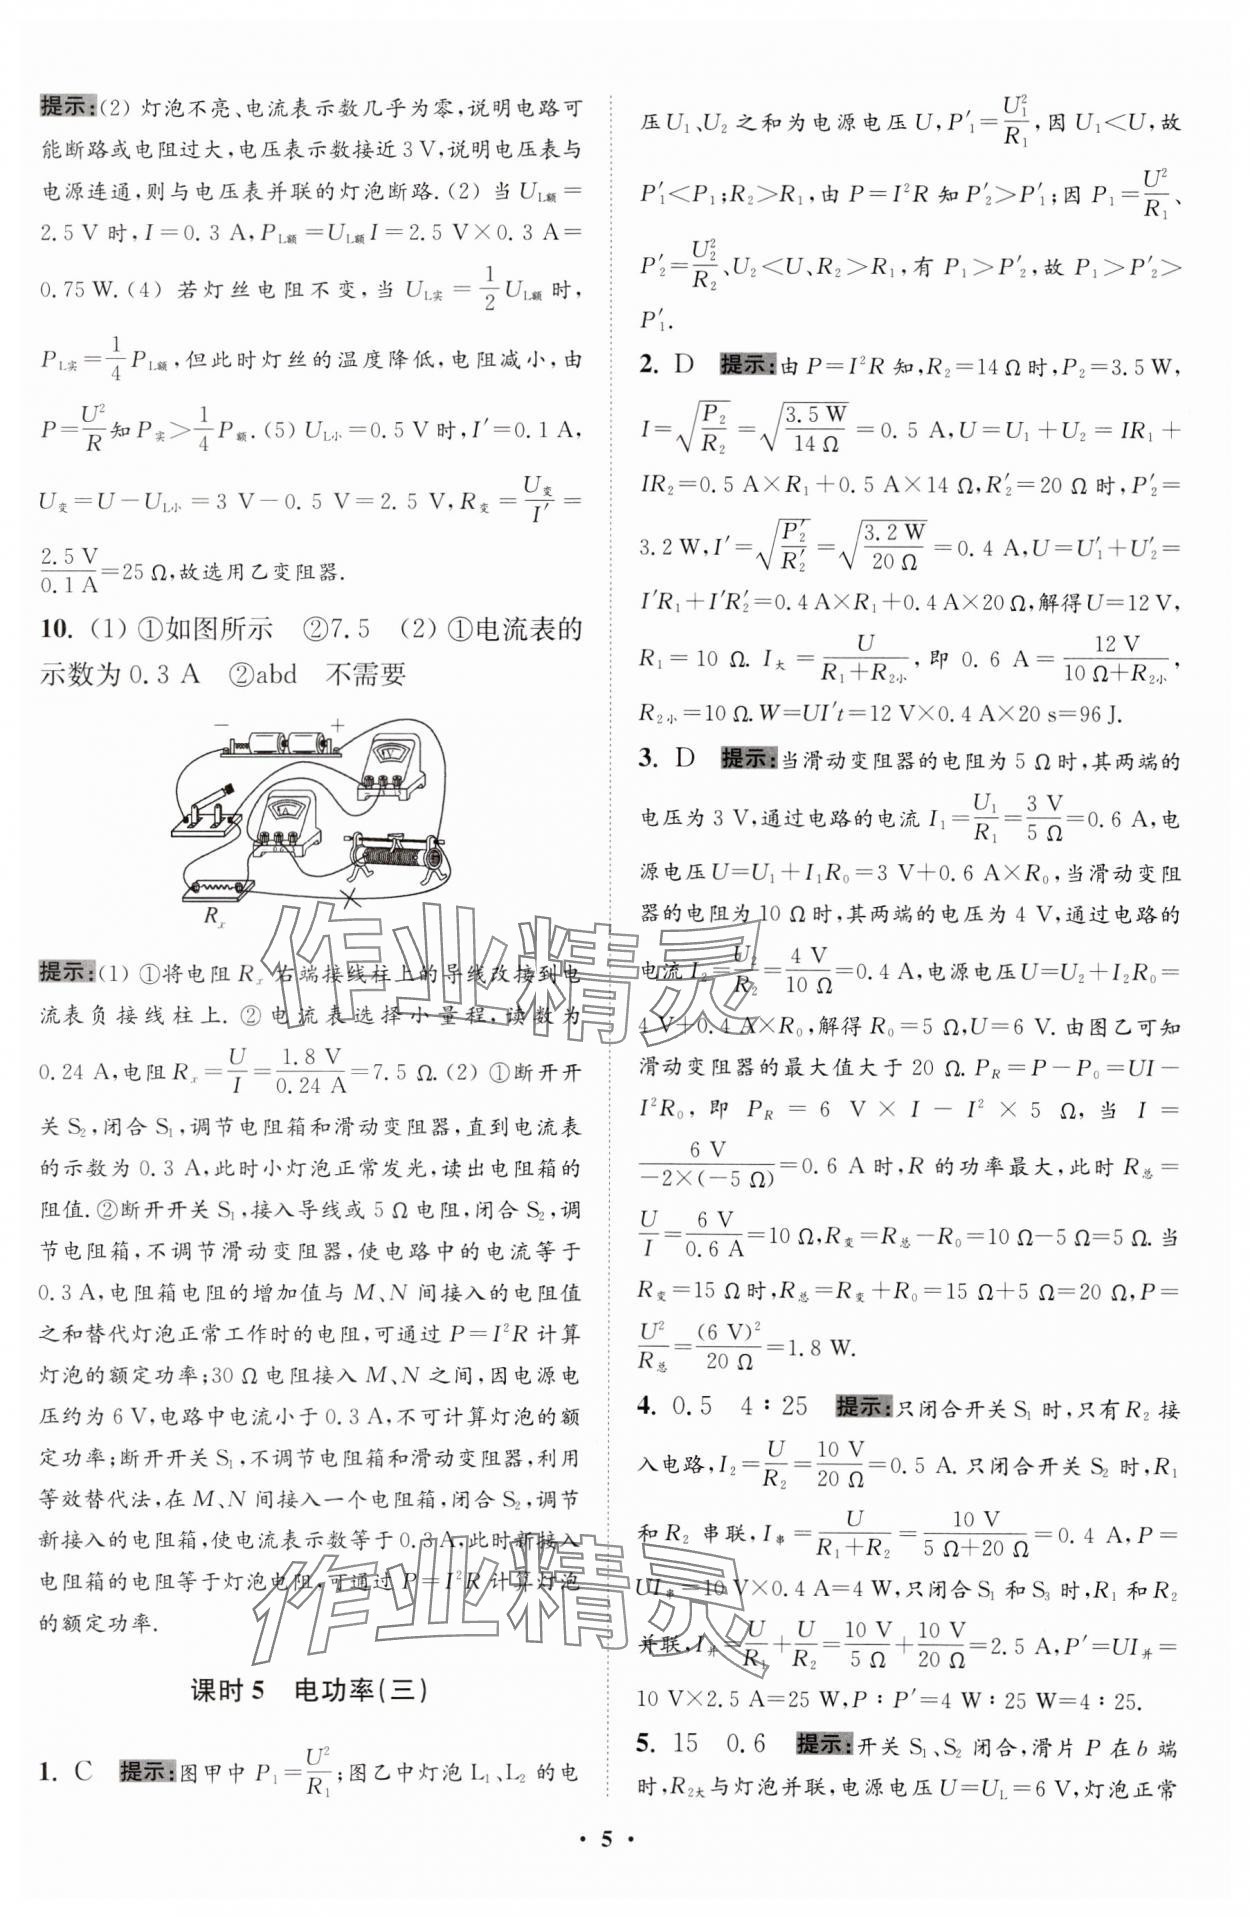 提示:(2) 灯泡不亮、电流表示数几乎为零,说明电路可
能断路或电阻过大,电压表示数接近 3 V,说明电压表与
电源连通,则与电压表并联的灯泡断路.(2) 当 U_L额=
2.5 V 时,I=0.3 A,P_L额=U_L额I=2.5 V×0.3 A=
0.75 W.(4) 若灯丝电阻不变,当 U_L实=1/2 U_L额 时,
P_L实=1/4 P_L额,但此时灯丝的温度降低,电阻减小,由
P=U²/R 知 P实>1/4 P额.(5) U_L小=0.5 V 时,I′=0.1 A,
U变=U−U_L小=3 V−0.5 V=2.5 V,R变=U变/I′=
2.5 V/0.1 A=25 Ω,故选用乙变阻器.
10. (1) ①如图所示 ②7.5 (2) ①电流表的
示数为 0.3 A ②abd 不需要
− +
A
Rₓ
提示:(1) ①将电阻 Rₓ 右端接线柱上的导线改接到电
流表负接线柱上. ② 电流表选择小量程,读数为
0.24 A,电阻 Rₓ=U/I=1.8 V/0.24 A=7.5 Ω.(2) ①断开开
关 S₂,闭合 S₁,调节电阻箱和滑动变阻器,直到电流表
的示数为 0.3 A,此时小灯泡正常发光,读出电阻箱的
阻值.②断开开关 S₁,接入导线或 5 Ω 电阻,闭合 S₂,调
节电阻箱,不调节滑动变阻器,使电路中的电流等于
0.3 A,电阻箱电阻的增加值与 M、N 间接入的电阻值
之和替代灯泡正常工作时的电阻,可通过 P=I²R 计算
灯泡的额定功率;30 Ω 电阻接入 M、N 之间,因电源电
压约为 6 V,电路中电流小于 0.3 A,不可计算灯泡的额
定功率;断开开关 S₁,不调节电阻箱和滑动变阻器,利用
等效替代法,在 M、N 间接入一个电阻箱,闭合 S₂,调节
新接入的电阻箱,使电流表示数等于 0.3 A,此时新接入
电阻箱的电阻等于灯泡电阻,可通过 P=I²R 计算灯泡
的额定功率.
课时 5 电功率(三)
1. C 提示:图甲中 P₁=U²/R₁;图乙中灯泡 L₁、L₂ 的电
压 U₁、U₂ 之和为电源电压 U,P′₁=U₁²/R₁,因 U₁<U,故
P′₁<P₁;R₂>R₁,由 P=I²R 知 P′₂>P′₁;因 P₁=U²/R₁、
P′₂=U₂²/R₂、U₂<U、R₂>R₁,有 P₁>P′₂,故 P₁>P′₂>
P′₁.
2. D 提示:由 P=I²R 知,R₂=14 Ω 时,P₂=3.5 W,
I=√(P₂/R₂)=√(3.5 W/14 Ω)=0.5 A,U=U₁+U₂=IR₁+
IR₂=0.5 A×R₁+0.5 A×14 Ω,R′₂=20 Ω 时,P′₂=
3.2 W,I′=√(P′₂/R′₂)=√(3.2 W/20 Ω)=0.4 A,U=U′₁+U′₂=
I′R₁+I′R′₂=0.4 A×R₁+0.4 A×20 Ω,解得 U=12 V,
R₁=10 Ω. I大=U/(R₁+R₂小),即 0.6 A=12 V/(10 Ω+R₂小),
R₂小=10 Ω.W=UI′t=12 V×0.4 A×20 s=96 J.
3. D 提示:当滑动变阻器的电阻为 5 Ω 时,其两端的
电压为 3 V,通过电路的电流 I₁=U₁/R₁=3 V/5 Ω=0.6 A,电
源电压 U=U₁+I₁R₀=3 V+0.6 A×R₀,当滑动变阻
器的电阻为 10 Ω 时,其两端的电压为 4 V,通过电路的
电流 I₂=U₂/R₂=4 V/10 Ω=0.4 A,电源电压 U=U₂+I₂R₀=
4 V+0.4 A×R₀,解得 R₀=5 Ω,U=6 V. 由图乙可知
滑动变阻器的最大值大于 20 Ω. P_R=P−P₀=UI−
I²R₀,即 P_R=6 V×I−I²×5 Ω,当 I=
6 V/(−2×(−5 Ω))=0.6 A 时,R 的功率最大,此时 R总=
U/I=6 V/0.6 A=10 Ω,R变=R总−R₀=10 Ω−5 Ω=5 Ω. 当
R变=15 Ω 时,R总=R变+R₀=15 Ω+5 Ω=20 Ω,P=
U²/R总=(6 V)²/20 Ω=1.8 W.
4. 0.5 4∶25 提示:只闭合开关 S₁ 时,只有 R₂ 接
入电路,I₂=U/R₂=10 V/20 Ω=0.5 A. 只闭合开关 S₂ 时,R₁
和 R₂ 串联,I串=U/(R₁+R₂)=10 V/(5 Ω+20 Ω)=0.4 A,P=
UI串=10 V×0.4 A=4 W,只闭合 S₁ 和 S₃ 时,R₁ 和 R₂
并联,I并=U/R₁+U/R₂=10 V/5 Ω+10 V/20 Ω=2.5 A,P′=UI并=
10 V×2.5 A=25 W,P∶P′=4 W∶25 W=4∶25.
5. 15 0.6 提示:开关 S₁、S₂ 闭合,滑片 P 在 b 端
时,R₂大与灯泡并联,电源电压 U=U_L=6 V,灯泡正常
• 5 •
作业精灵
作业精灵